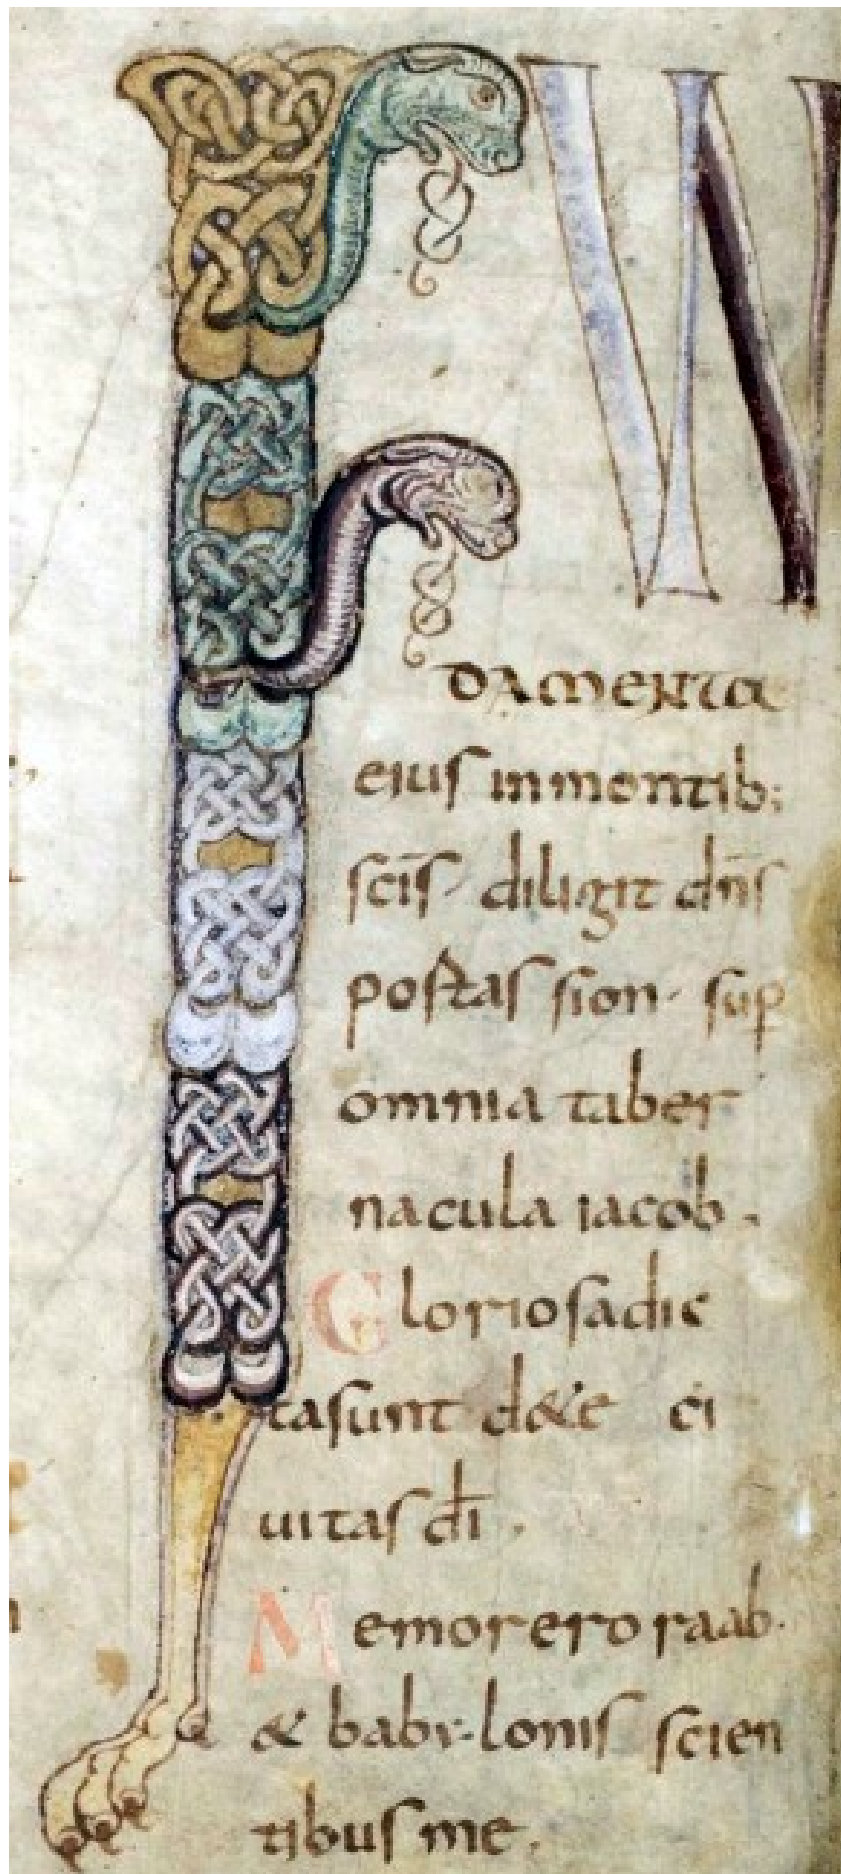 FUN
DAMENTA
eius inmontib;
scīs diligit dn̄s
portas sion· sup̱
omnia taber
nacula iacob·
Gloriosa dic
ta sunt de te ci
uitas dī·
Memor ero raab·
& babylonis scien
tibus me·